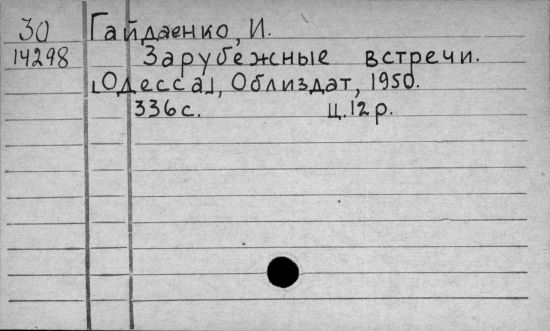 30 Гайдаенко, И.
14298 Зарубежные встречи.
[Одесса], Облиздат, 1950.
336 с. ц. 12 р.